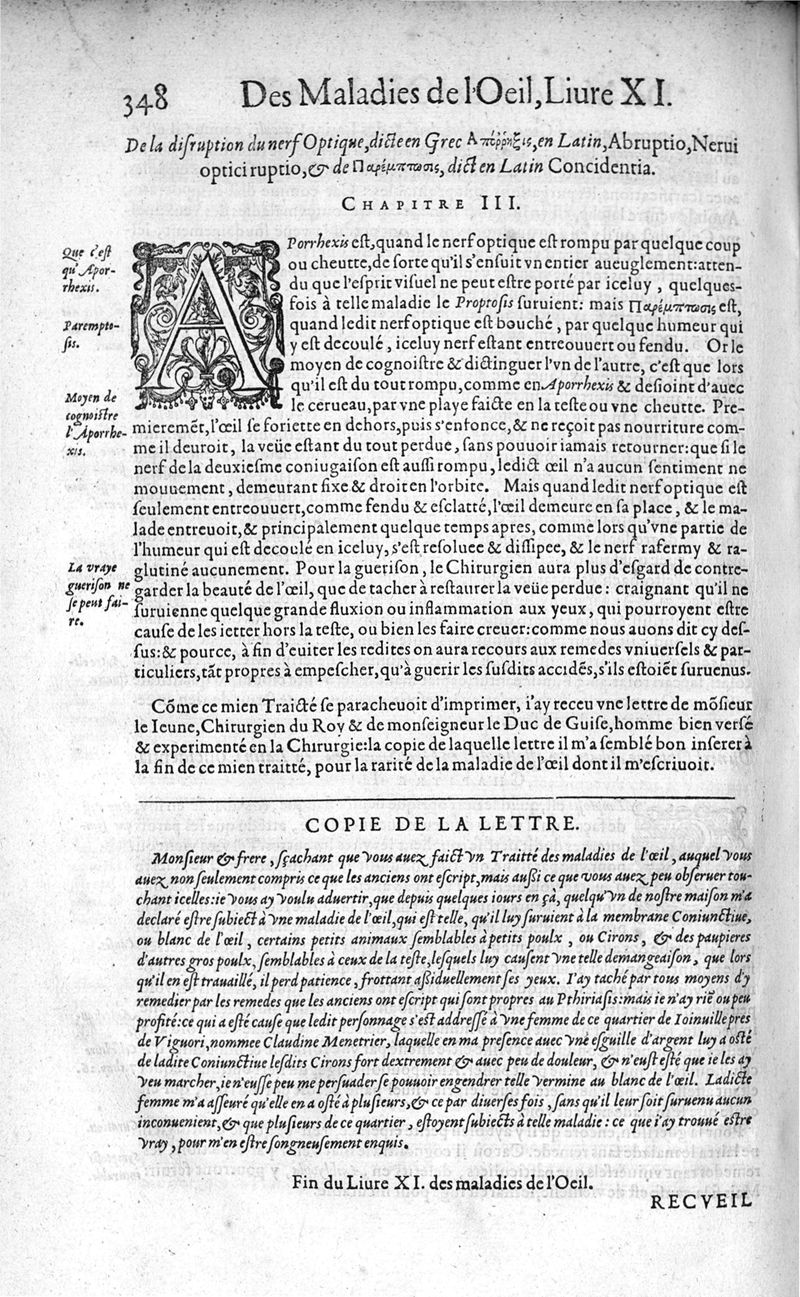 348 Des Maladies de l'Oeil, Liure XI.
De la disruption du nerf Optique, dicte en Grec Ἀπόρρηξις, en Latin, Abruptio, Nerui
optici ruptio, & de Παρέμπτωσις, dict en Latin Concidentia.
CHAPITRE III.
Que c'est
qu'Apor-
rhexis.
Parempto-
sis.
Moyen de
cognoistre
l'Aporrhe-
xis.
La vraye
guerison ne
se peut fai-
re.
APorrhexis est, quand le nerf optique est rompu par quelque coup
ou cheutte, de sorte qu'il s'ensuit vn entier aueuglement: atten-
du que l'esprit visuel ne peut estre porté par iceluy, quelques-
fois à telle maladie le Proptosis suruient: mais Παρέμπτωσις est,
quand ledit nerf optique est bouché, par quelque humeur qui
y est decoulé, iceluy nerf estant entreouuert ou fendu. Or le
moyen de cognoistre & dictinguer l'vn de l'autre, c'est que lors
qu'il est du tout rompu, comme en Aporrhexis & desioint d'auec
le cerueau, par vne playe faicte en la teste ou vne cheutte. Pre-
mieremẽt, l'œil se foriette en dehors, puis s'enfonce, & ne reçoit pas nourriture com-
me il deuroit, la veüe estant du tout perdue, sans pouuoir iamais retourner: que si le
nerf de la deuxiesme coniugaison est aussi rompu, ledict œil n'a aucun sentiment ne
mouuement, demeurant fixe & droit en l'orbite. Mais quand ledit nerf optique est
seulement entreouuert, comme fendu & esclatté, l'œil demeure en sa place, & le ma-
lade entreuoit, & principalement quelque temps apres, comme lors qu'vne partie de
l'humeur qui est decoulé en iceluy, s'est resoluee & dissipee, & le nerf rafermy & ra-
glutiné aucunement. Pour la guerison, le Chirurgien aura plus d'esgard de contre-
garder la beauté de l'œil, que de tacher à restaurer la veüe perdue: craignant qu'il ne
suruienne quelque grande fluxion ou inflammation aux yeux, qui pourroyent estre
cause de les ietter hors la teste, ou bien les faire creuer: comme nous auons dit cy des-
sus: & pource, à fin d'euiter les redites on aura recours aux remedes vniuersels & par-
ticuliers, tãt propres à empescher, qu'à guerir les susdits accidẽs, s'ils estoiẽt suruenus.
Cõme ce mien Traicté se paracheuoit d'imprimer, i'ay receu vne lettre de mõsieur
le Ieune, Chirurgien du Roy & de monseigneur le Duc de Guise, homme bien versé
& experimenté en la Chirurgie: la copie de laquelle lettre il m'a semblé bon inserer à
la fin de ce mien traitté, pour la rarité de la maladie de l'œil dont il m'escriuoit.
COPIE DE LA LETTRE.
Monsieur & frere, sçachant que vous auez faict vn Traitté des maladies de l'œil, auquel vous
auez non seulement compris ce que les anciens ont escript, mais aussi ce que vous auez peu obseruer tou-
chant icelles: ie vous ay voulu aduertir, que depuis quelques iours en çà, quelqu'vn de nostre maison m'a
declaré estre subiect à vne maladie de l'œil, qui est telle, qu'il luy suruient à la membrane Coniunctiue,
ou blanc de l'œil, certains petits animaux semblables à petits poulx, ou Cirons, & des paupieres
d'autres gros poulx, semblables à ceux de la teste, lesquels luy causent vne telle demangeaison, que lors
qu'il en est trauaillé, il perd patience, frottant assiduellement ses yeux. I'ay taché par tous moyens d'y
remedier par les remedes que les anciens ont escript qui sont propres au Pthiriasis: mais ie n'ay riẽ ou peu
profité: ce qui a esté cause que ledit personnage s'est addressé à vne femme de ce quartier de Ioinuille pres
de Viguori, nommee Claudine Menetrier, laquelle en ma presence auec vne esguille d'argent luy a osté
de ladite Coniunctiue lesdits Cirons fort dextrement & auec peu de douleur, & n'eust esté que ie les ay
veu marcher, ie n'eusse peu me persuader se pouuoir engendrer telle vermine au blanc de l'œil. Ladicte
femme m'a asseuré qu'elle en a osté à plusieurs, & ce par diuerses fois, sans qu'il leur soit suruenu aucun
inconuenient, & que plusieurs de ce quartier, estoyent subiects à telle maladie: ce que i'ay trouué estre
vray, pour m'en estre songneusement enquis.
Fin du Liure XI. des maladies de l'Oeil.
RECVEIL